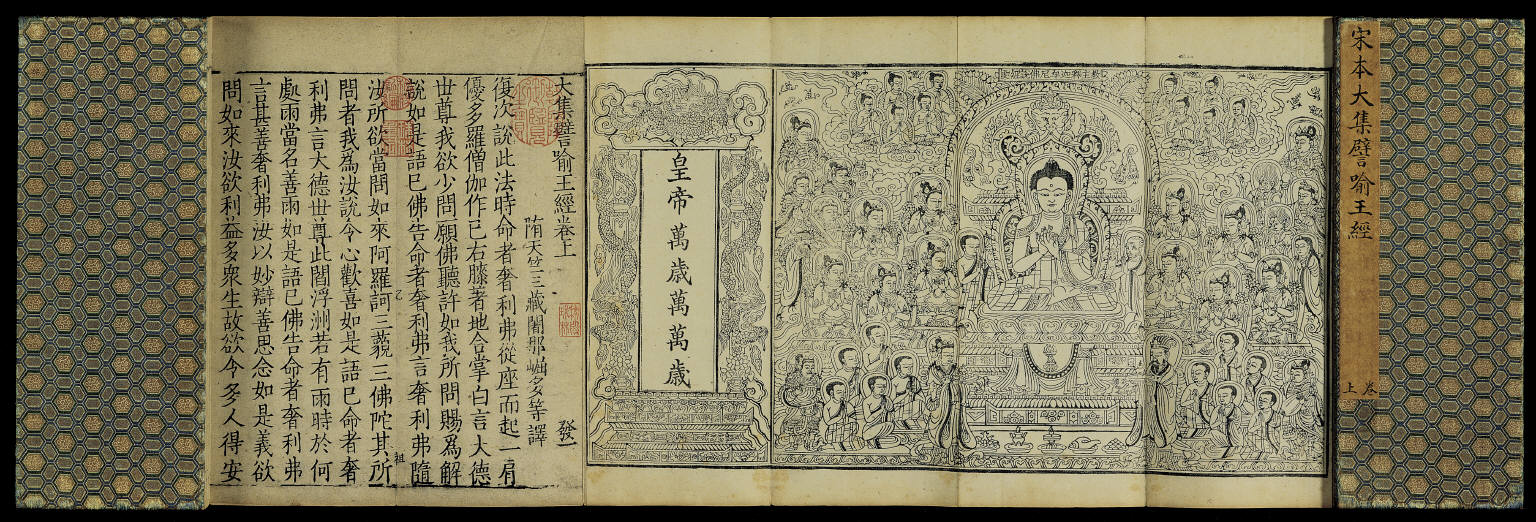 宋本大集譬喻王經
卷上
皇帝萬歲萬萬歲
大集譬喻王經卷上
隋天竺三藏闍那崛多等譯
發一
復次說此法時命者奢利弗從座而起一肩
優多羅僧伽作已右膝著地合掌白言大德
世尊我欲少問願佛聽許如我所問賜為解
說如是語已佛告命者奢利弗言奢利弗隨
汝所欲當問如來阿羅訶三藐三佛陀其所
問者我為汝說令心歡喜如是語已命者奢
利弗言大德世尊此閻浮洲若有雨時於何
處雨當名善雨如是語已佛告命者奢利弗
言甚善奢利弗汝以妙辯善思念如是義欲
問如來汝欲利益多眾生故欲令多人得安
乙
祖